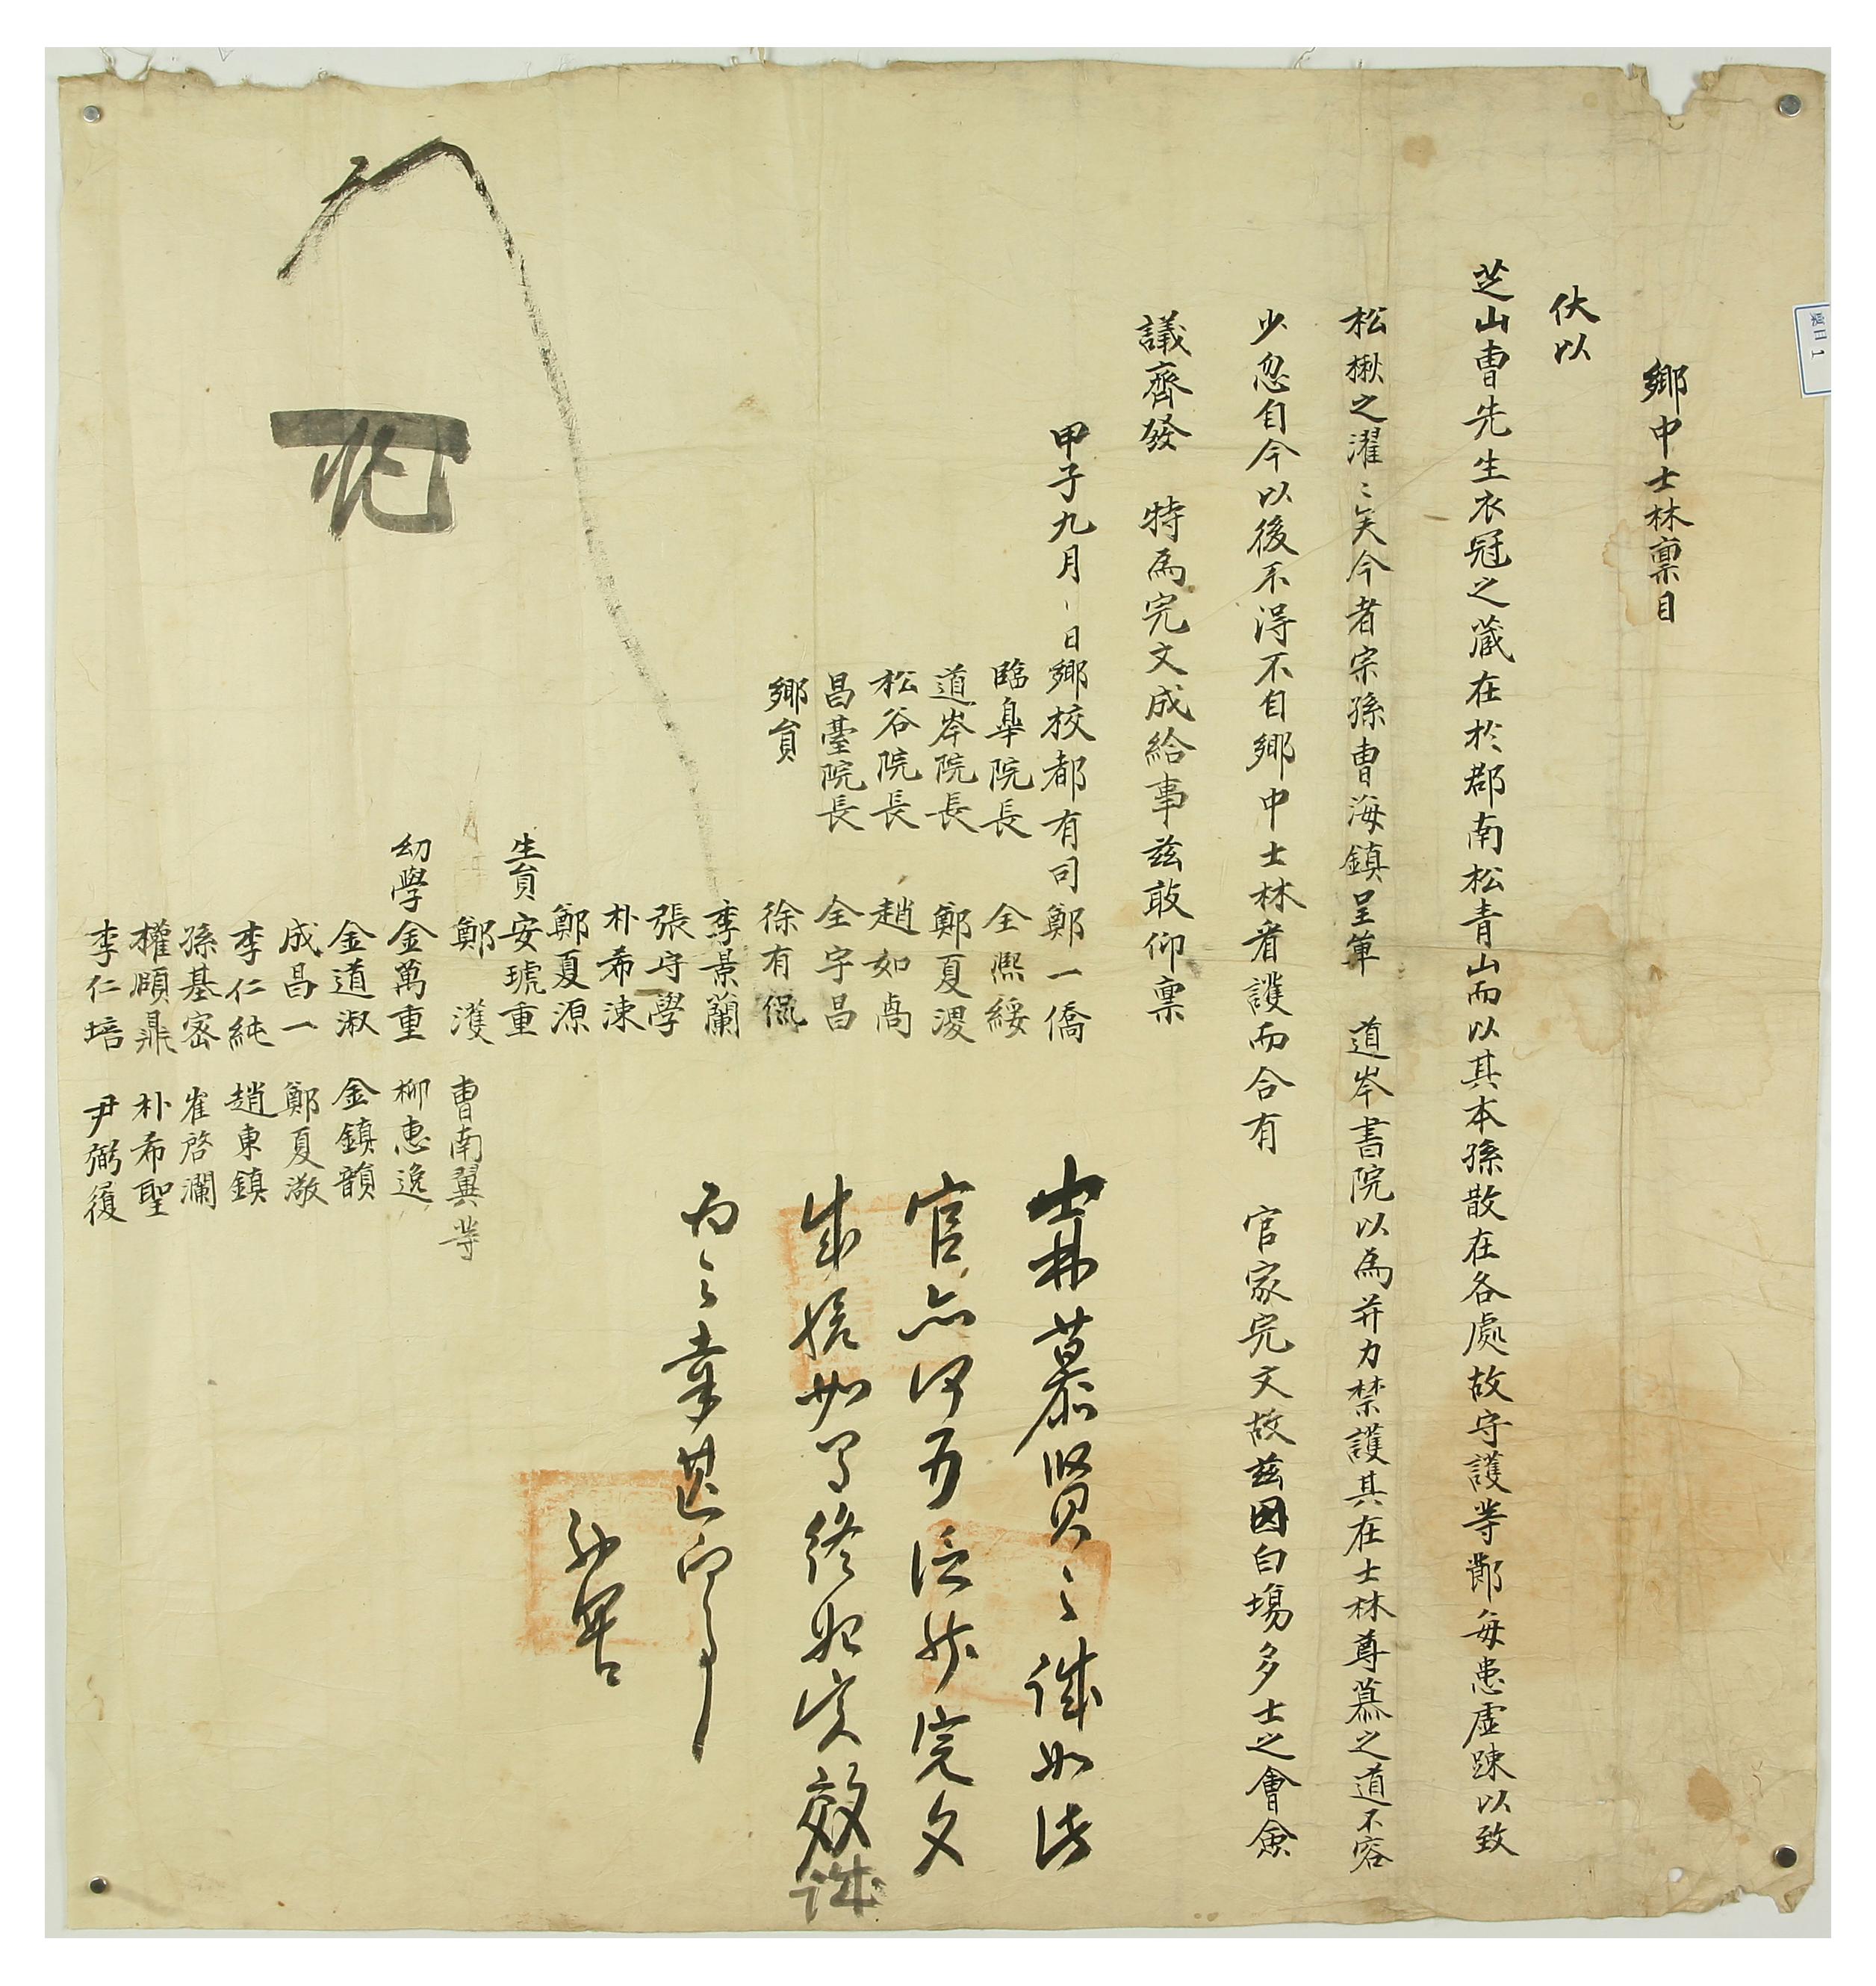 鄕中士林稟目
伏以
芝山曺先生衣冠之藏在於郡南松靑山而以其本孫散在各處故守護等節每患虛踈以致
松楸之濯〻矣今者宗孫曺海鎭呈單 道岑書院以爲幷力禁護其在士林尊慕之道不容
少忽自今以後不得不自鄕中士林看護而合有 官家完文故玆因白場多士之會僉
議齊發 特爲完文成給事玆敢仰稟
甲子九月 日鄕校都有司 鄭一僑
臨皐院長 全熙綏
道岑院長 鄭夏溭
松谷院長 趙如卨
昌臺院長 全宇昌
鄕員 徐有侃
李景蘭
張守學
朴希涑
鄭夏源
生員 安琥重
鄭 濩 曺南翼等
幼學 金萬重 柳惠逸
金道淑 金鎭韻
成昌一 鄭夏潡
李仁純 趙東鎭
孫基宻 崔啓瀾
權頤鼎 朴希聖
李仁培 尹弼復
士林慕賢之誠如此
官亦何可泛然完文
成給如是終始實效誠
爲之幸甚向事